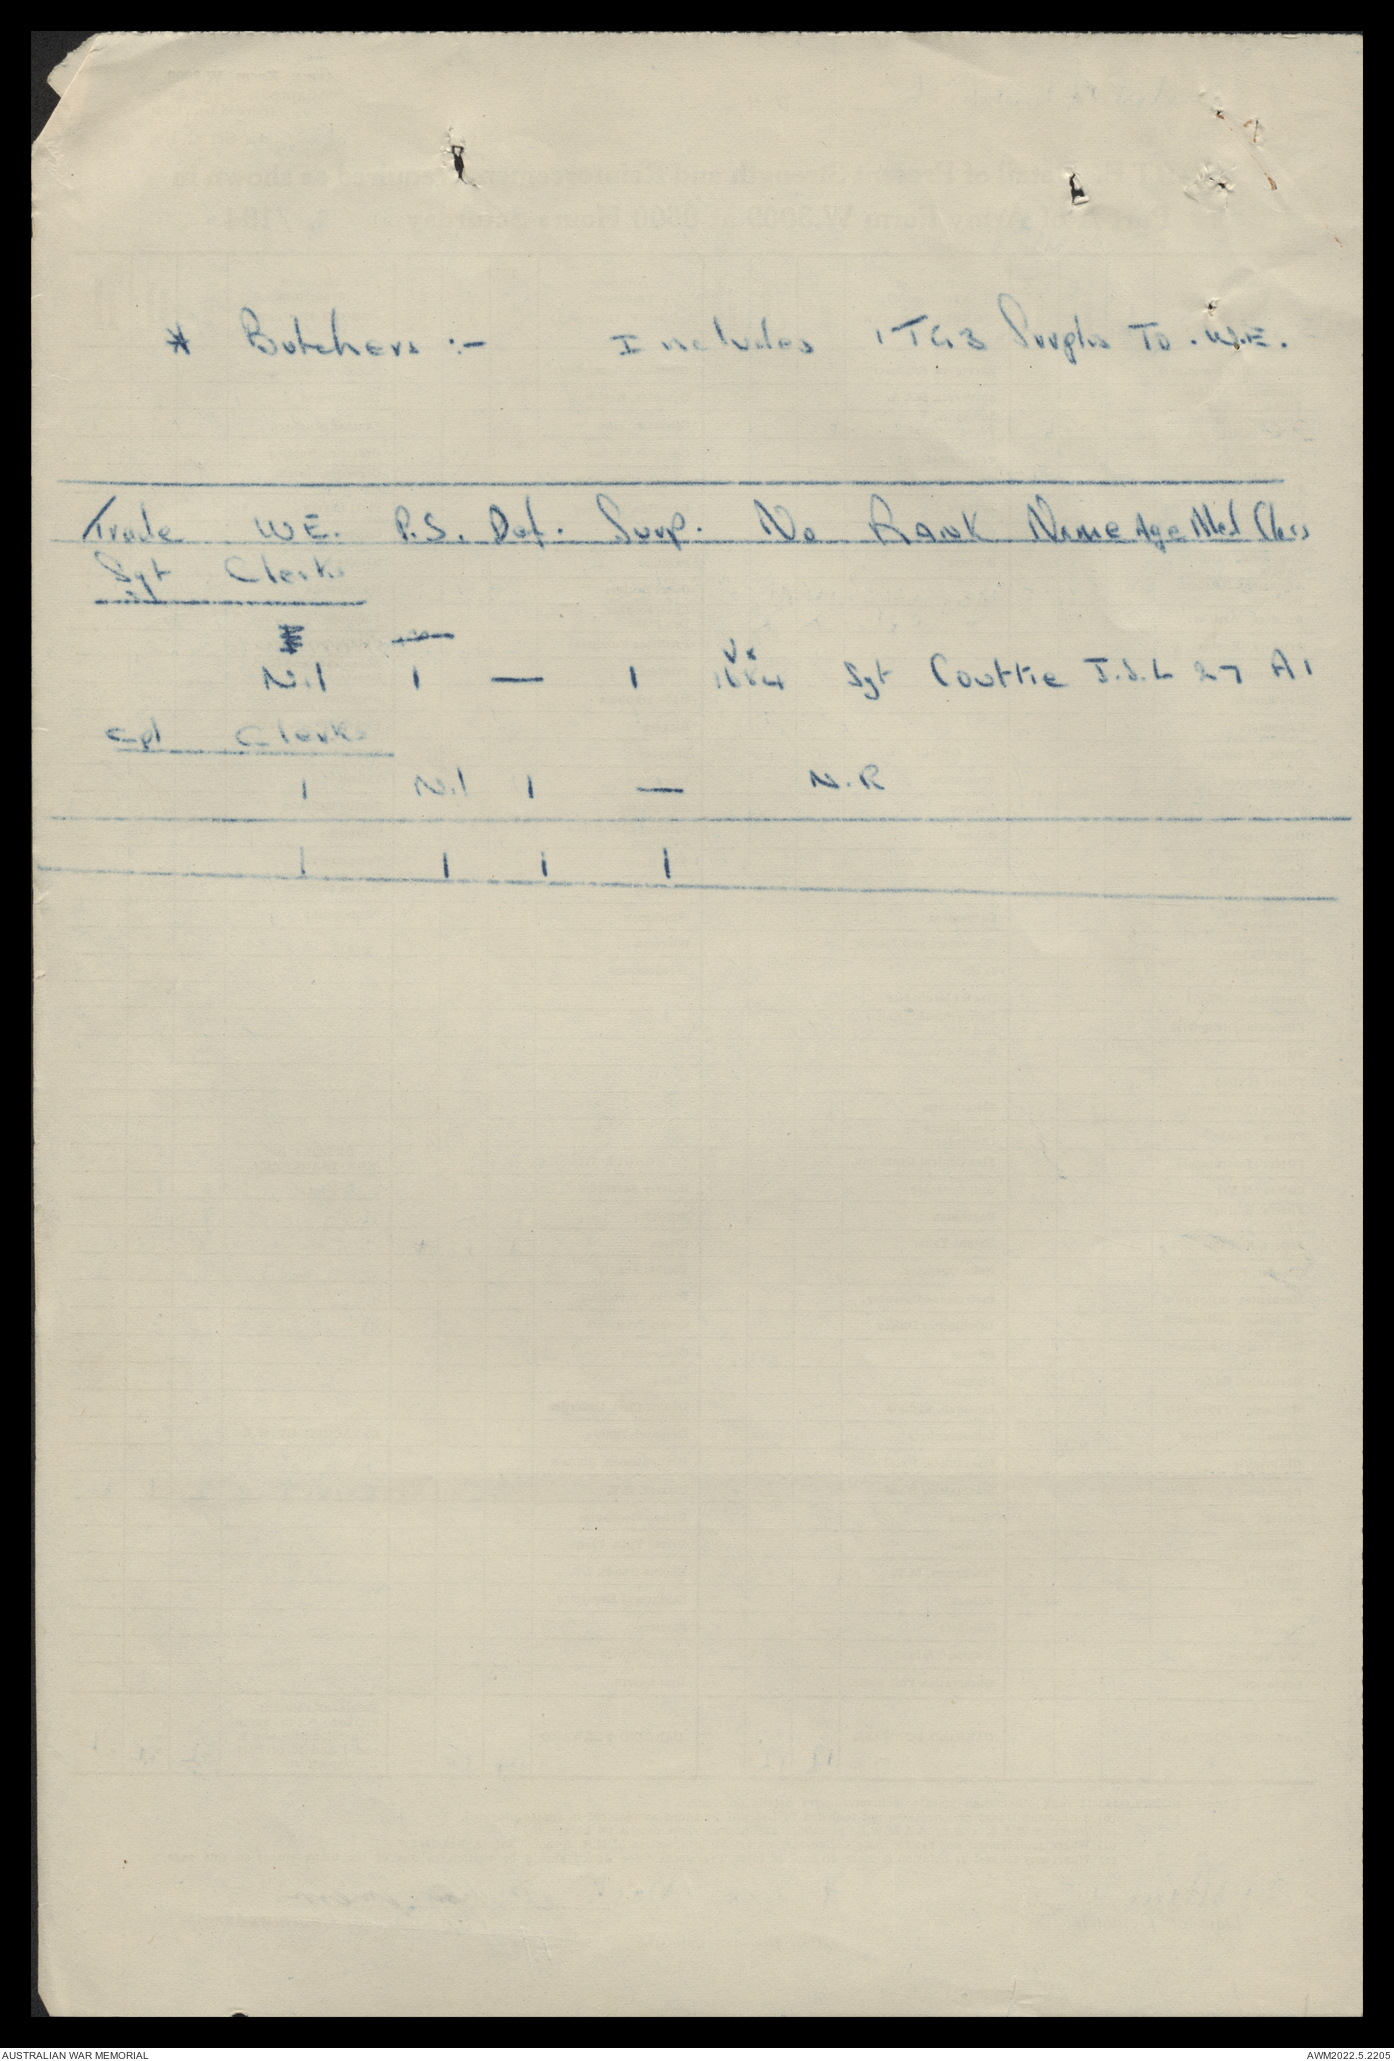 * Butchers :- Includes 1 TG3 Surplus To . W.E.
Trade W E. P.S. Def. Surp. No Rank Name Age Med Class
Sgt Clerks
Nil 1 — 1 Vx Sgt Couttie J.S.L 27 A1
Cpl Clerks
1 Nil 1 — N.R
1 1 1 1
AUSTRALIAN WAR MEMORIAL
AWM2022.5.2205